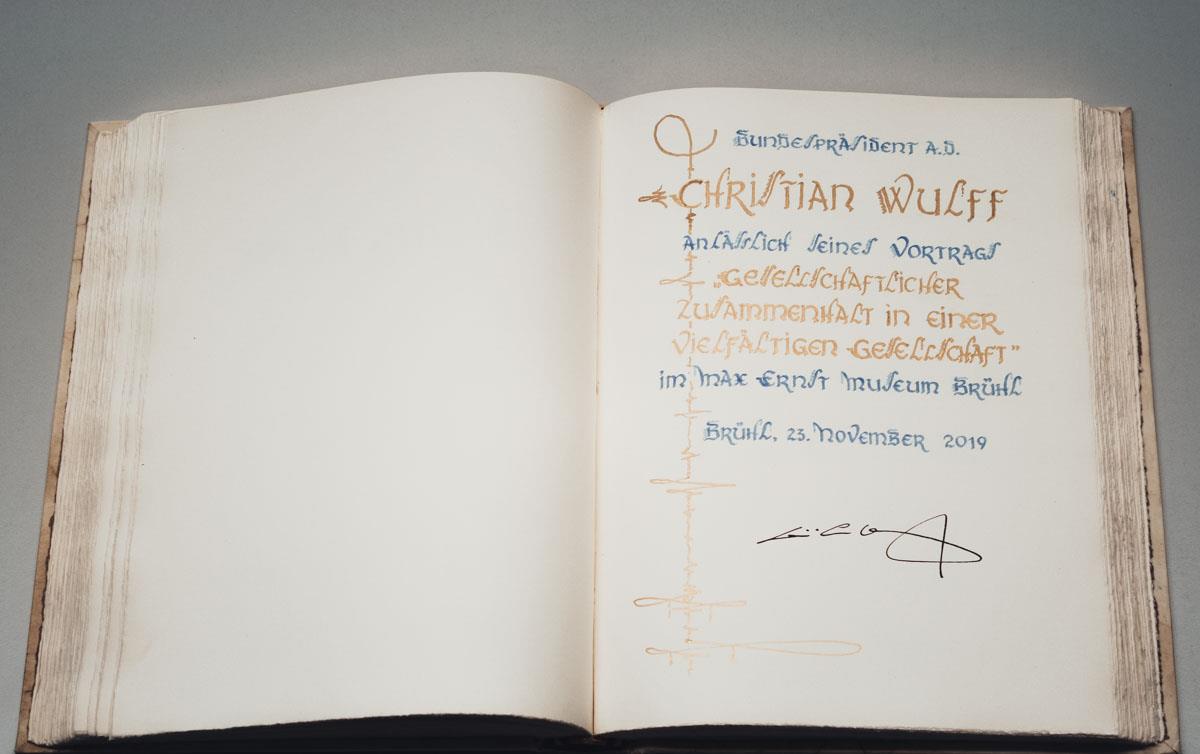 Bundespräsident a.D.
Christian Wulff
anlässlich seines Vortrags
„Gesellschaftlicher
Zusammenhalt in einer
vielfältigen Gesellschaft”
im Max Ernst Museum Brühl
Brühl, 23. November 2019